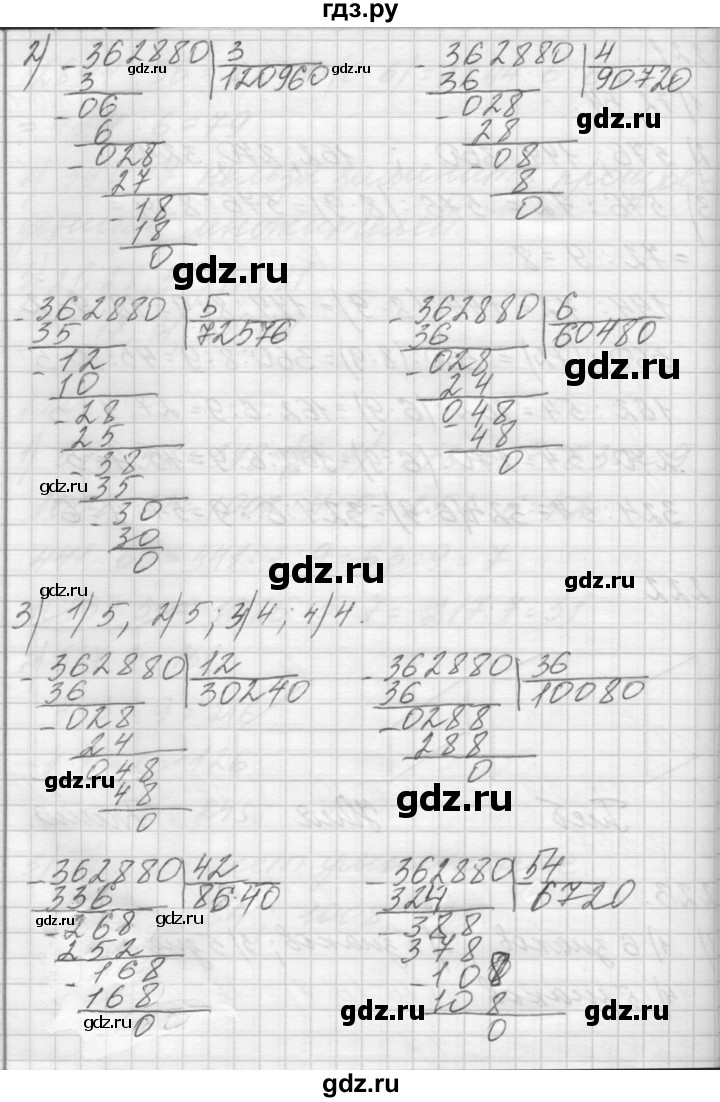 гдз.ру
2) - 362880 | 3
3 120960
- 06
6
- 028
27
- 18
18
0
- 362880 | 4
36 90720
- 028
28
- 08
8
0
gdz.ru
gdz.ru
- 362880 | 5
35 72576
- 12
10
- 28
25
- 38
35
- 30
30
0
- 362880 | 6
36 60480
- 028
24
- 048
48
0
gdz.ru
gdz.ru
gdz.ru
gdz.ru
gdz.ru
3) 1) 5, 2) 5; 3) 4; 4) 4.
- 362880 | 12
36 30240
- 028
24
048
48
0
- 362880 | 36
36 10080
- 0288
288
0
gdz.ru
gdz.ru
- 362880 | 42
336 8640
- 268
252
- 168
168
0
- 362880 | 54
324 6720
- 388
378
- 108
108
0
gdz.ru
gdz.ru
gdz.ru
gdz.ru
gdz.ru